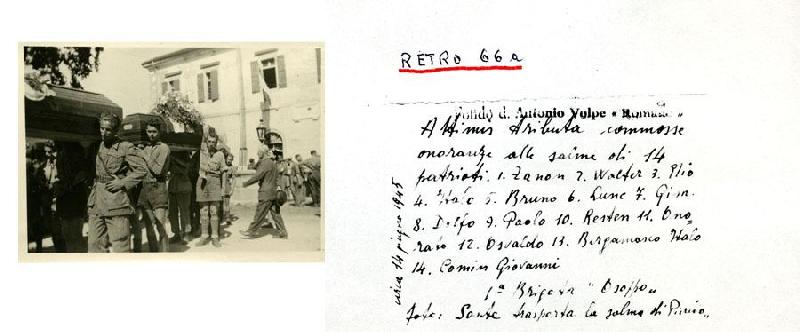 RETRO 66a
Fondo d. Antonio Volpe « Romano »
Attimis tributa commosse
onoranze alle salme di 14
patrioti. 1. Zanon 2. Walter 3. Elio
4. Italo 5. Bruno 6. Lune 7. Gim
8. Delfo 9. Paolo 10. Resten 11. Ono-
rato 12. Osvaldo 13. Bergamasco Italo
14. Comius Giovanni
1ª Brigata "Osoppo"
foto: Sante trasporta la salma di
circa 14 giugno 1945